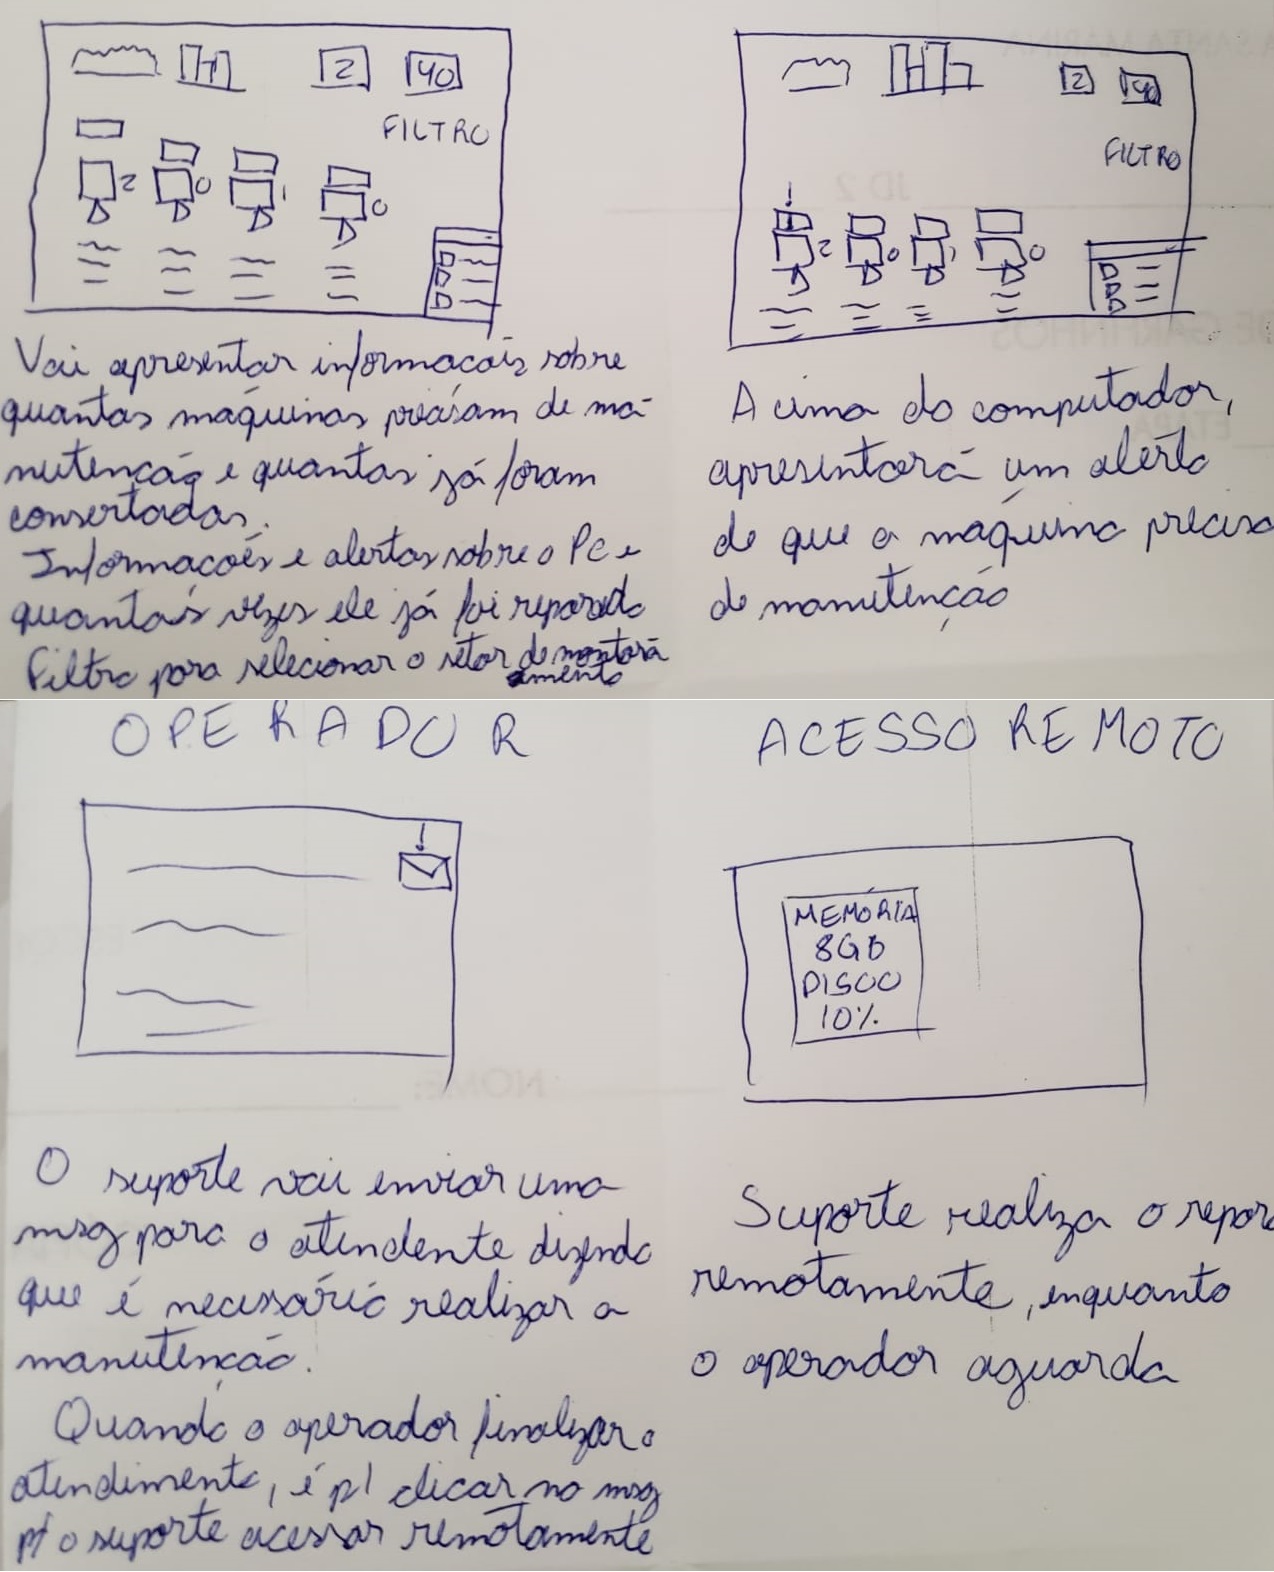 2
40
FILTRO
2
0
1
0
Vai apresentar informacois sobre
quantas máquinas precisam de ma-
nutenção e quantas já foram
consertadas.
Informacoẽs e alertas sobre o PC e
quantas vezes ele já foi reparado
Filtro para selecionar o setor de monitora
amento
2
40
FILTRO
2
0
1
0
Acima do computador,
apresentará um alerta
de que a máquina precisa
de manutenção
OPERADOR
O suporte vai enviar uma
msg para o atendente dizendo
que é necessário realizar a
manutenção.
Quando o operador finalizar o
atendimento, é p/ clicar na msg
p/ o suporte acessar remotamente
ACESSO REMOTO
MEMÓRIA
8GB
DISCO
10%
Suporte realiza o repar
remotamente, enquanto
o operador aguarda